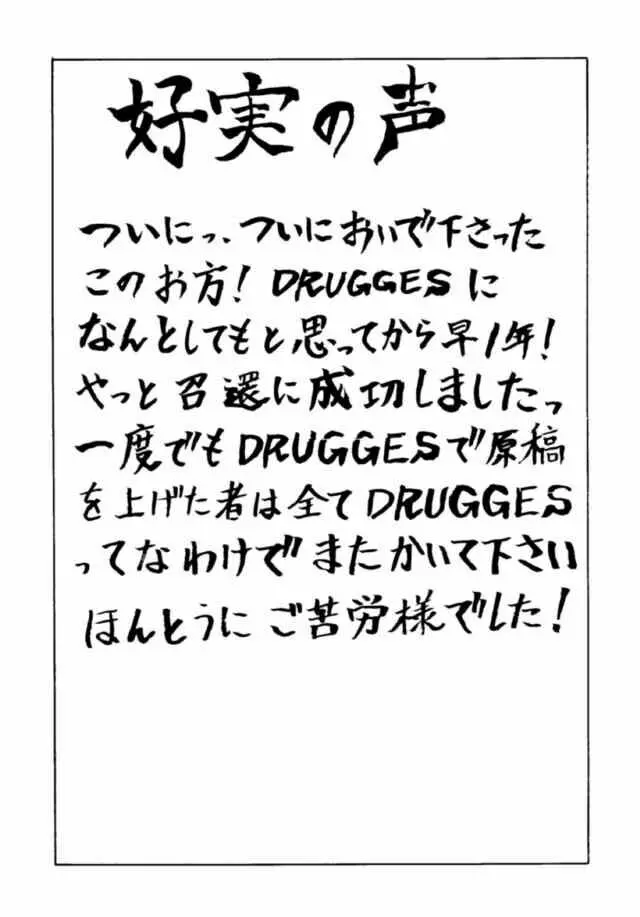 好実の声
ついにっ、ついにおいで下さった
このお方！DRUGGESに
なんとしてもと思ってから早1年！
やっと召還に成功しましたっ
一度でもDRUGGESで原稿
を上げた者は全てDRUGGES
ってなわけでまたかいて下さい
ほんとうにご苦労様でした！